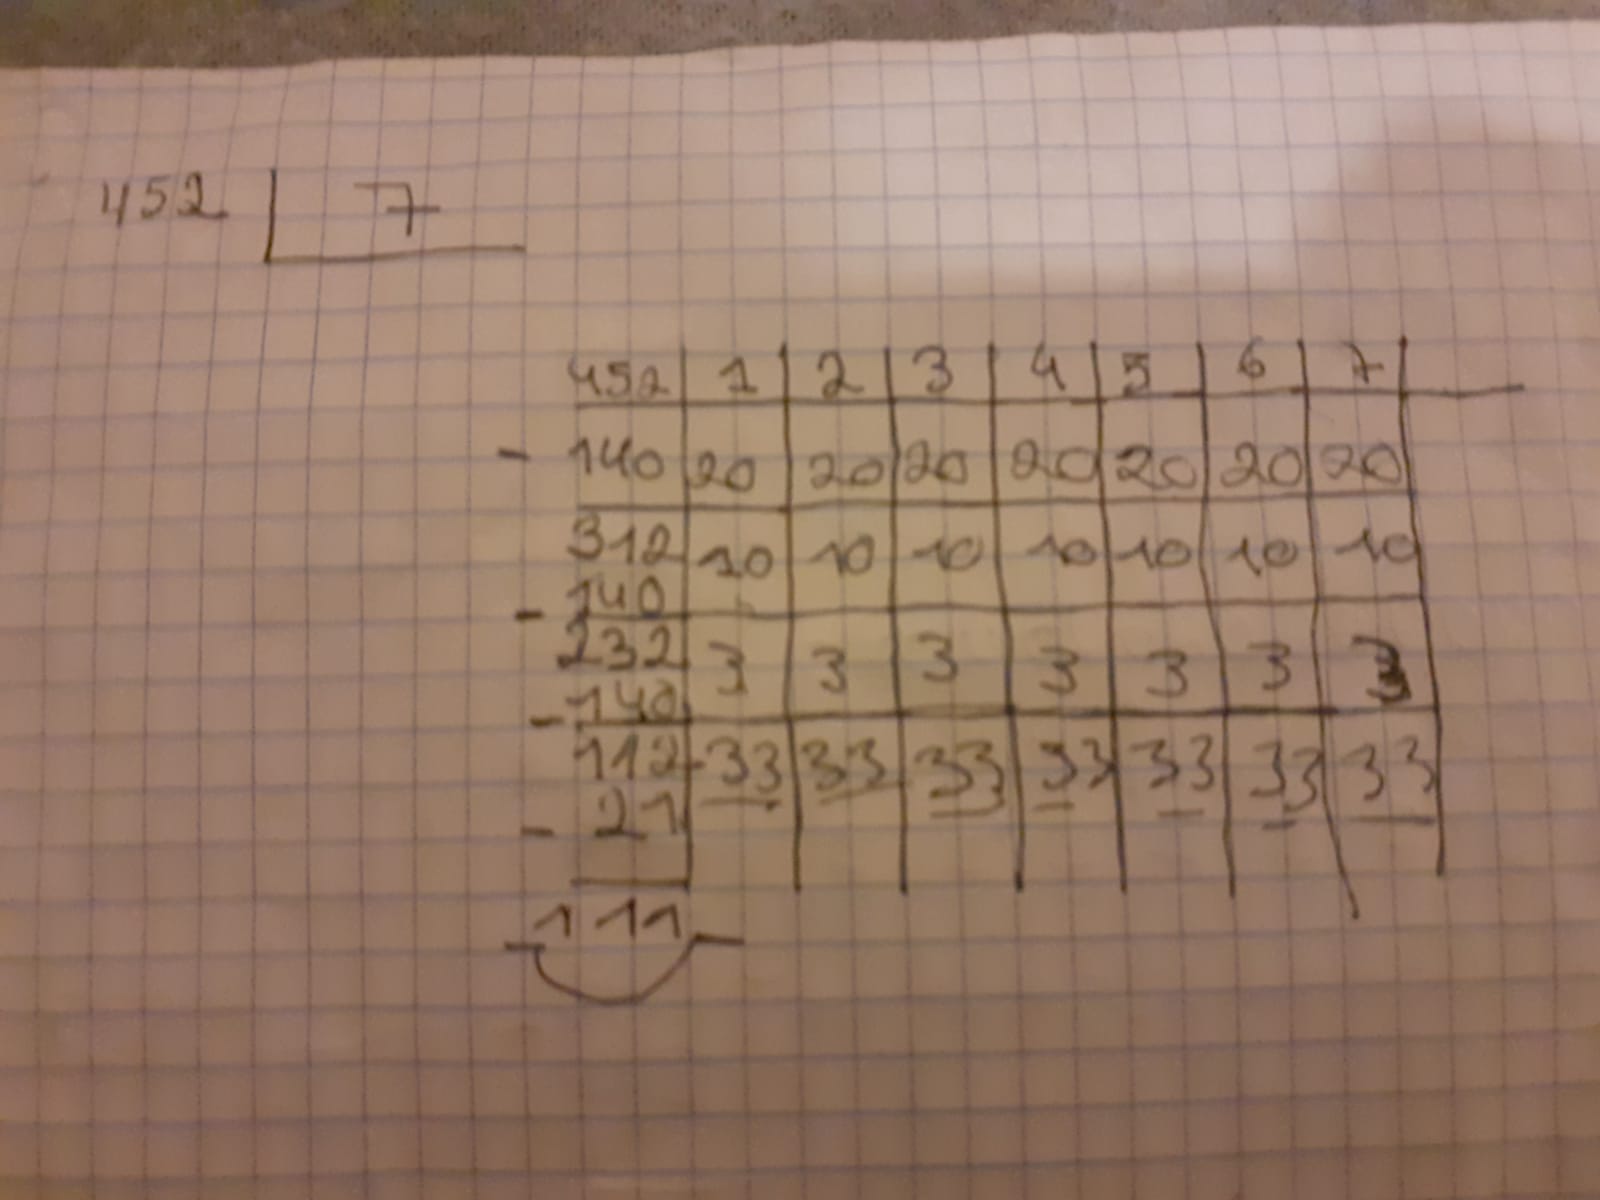 452 | 7
452 | 1 | 2 | 3 | 4 | 5 | 6 | 7
- 140 | 20 | 20 | 20 | 20 | 20 | 20 | 20
312 | 10 | 10 | 10 | 10 | 10 | 10 | 10
- 140
232 | 3 | 3 | 3 | 3 | 3 | 3 | 3
- 140
112 | 33 | 33 | 33 | 33 | 33 | 33 | 33
- 21
111